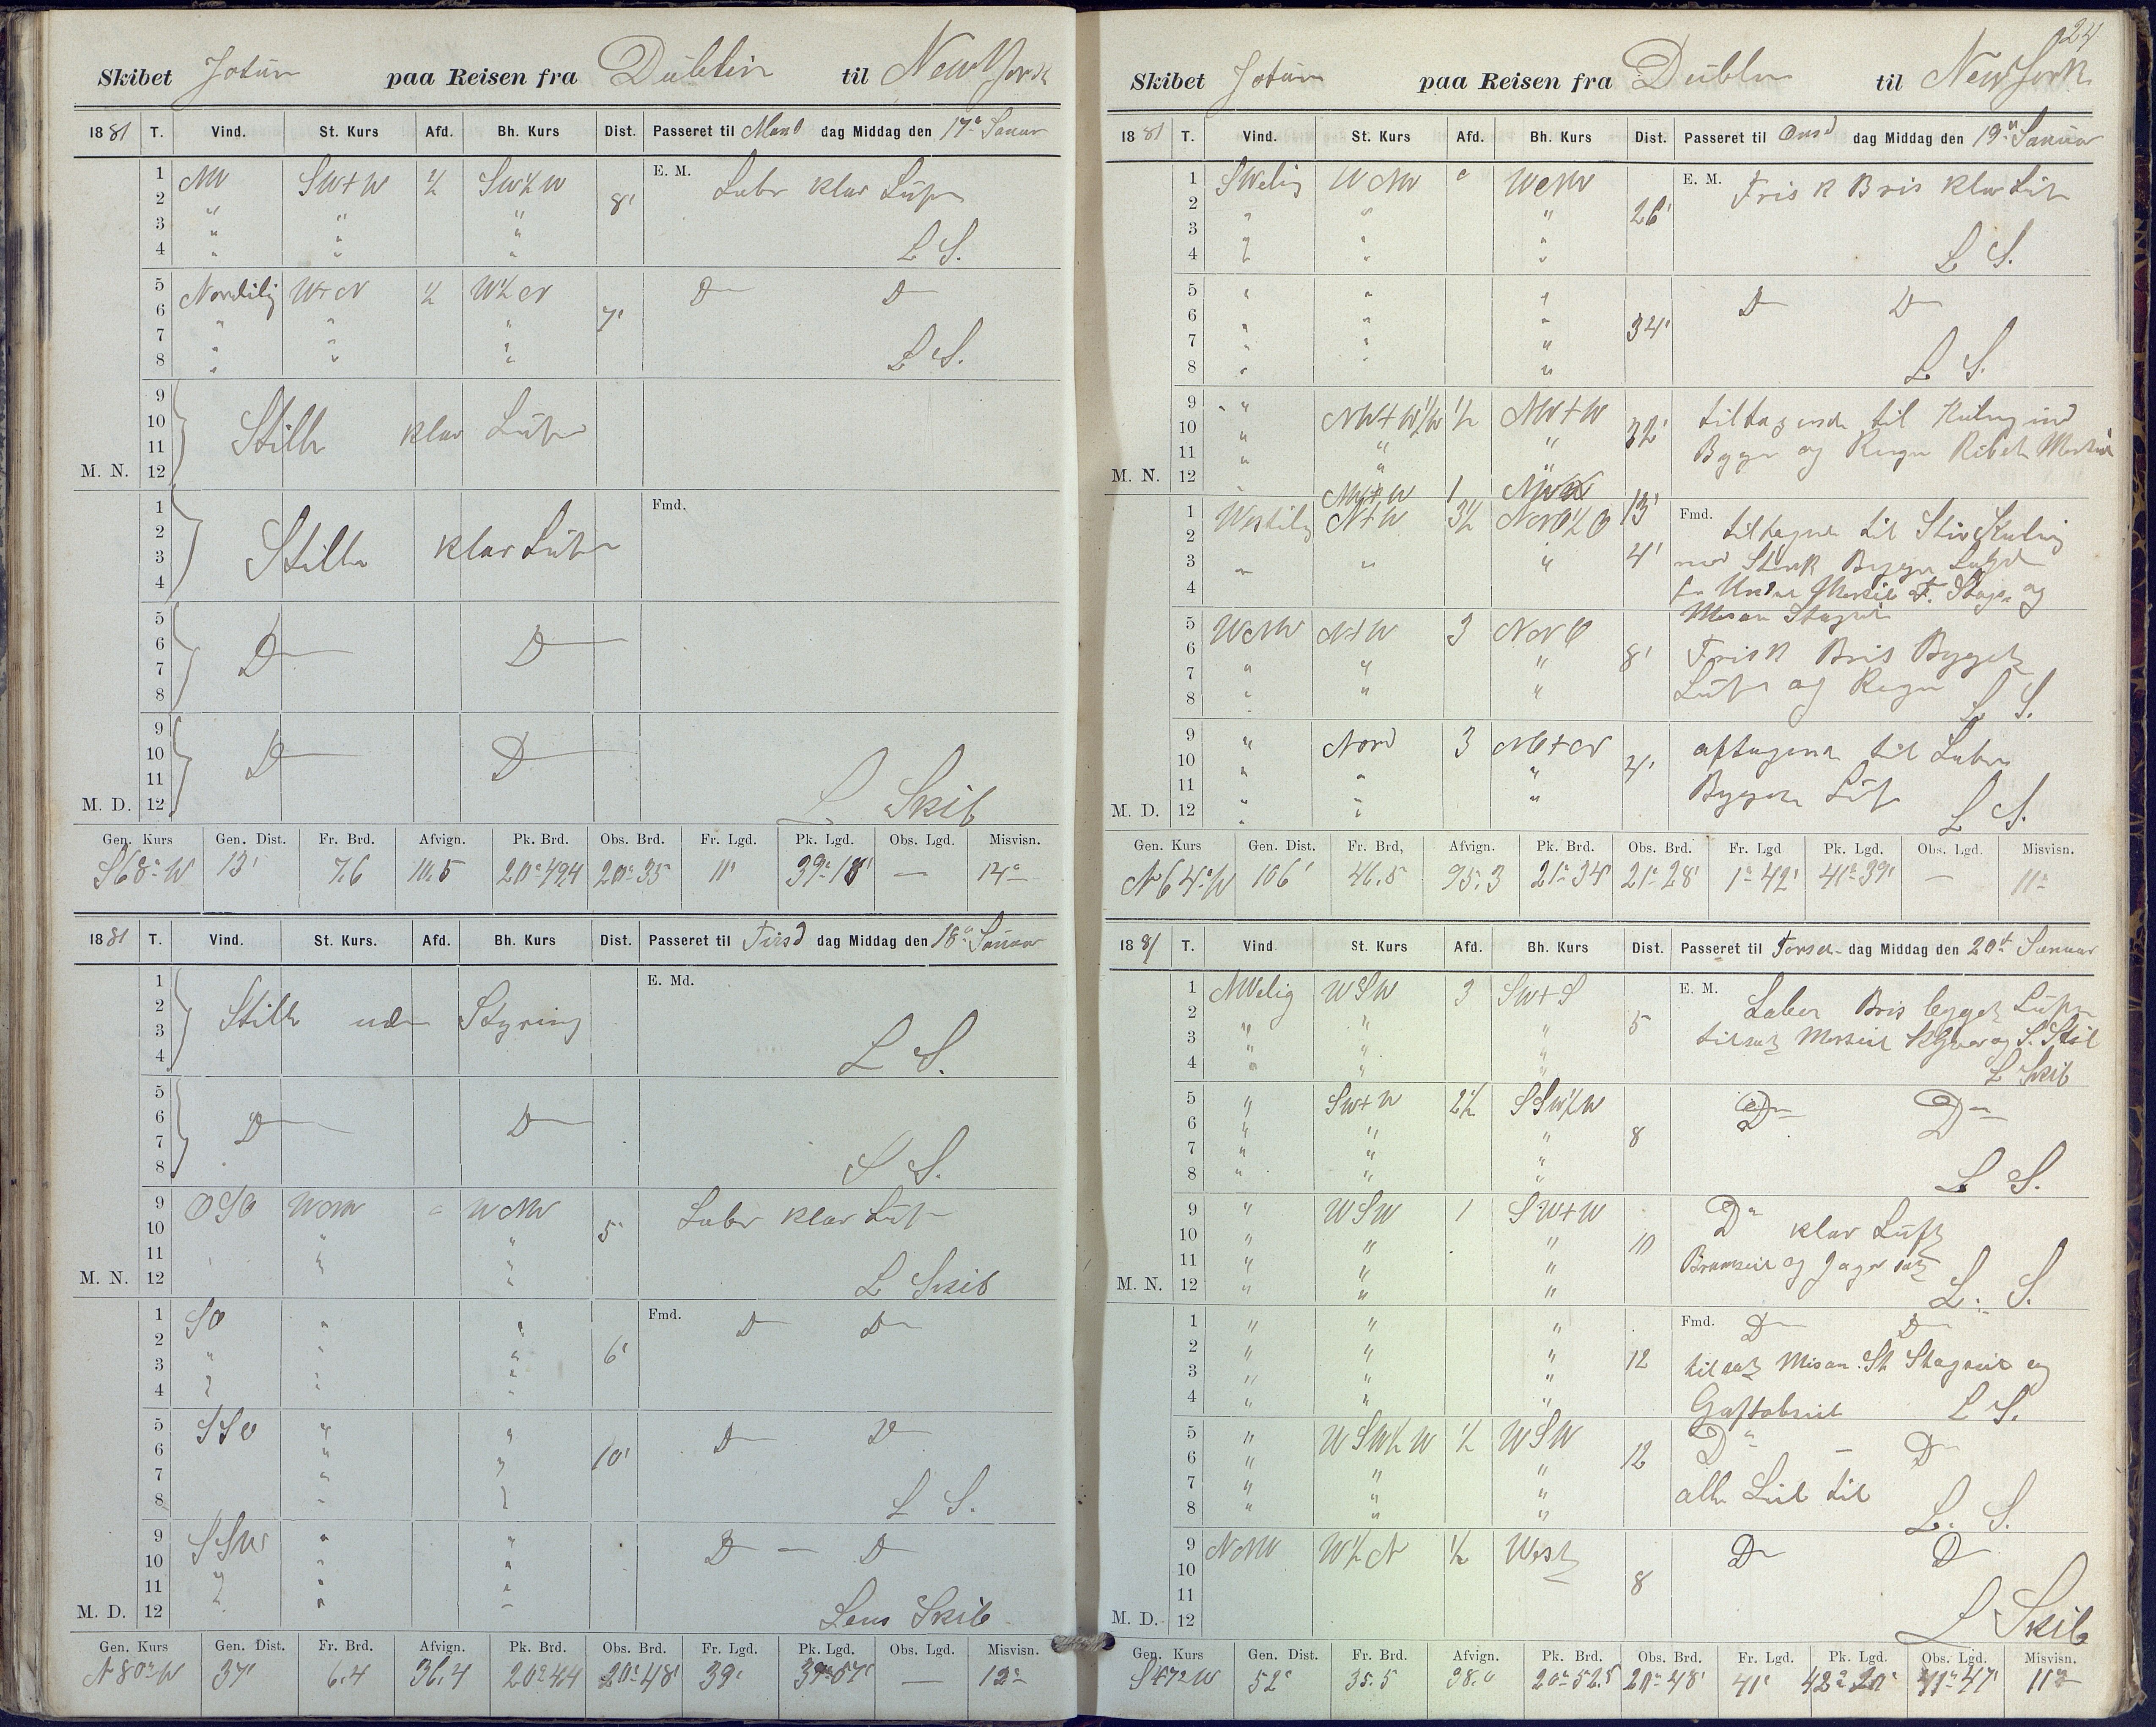 Skibet Jotun paa Reisen fra Dublin til New York
1881 T. Vind. St. Kurs Afd. Bh. Kurs Dist. Passeret til Mand dag Middag den 17de Januar
1 NW SW+W ½ SW½W E. M. Laber klar Luft
2 " " " 8'
3 " " "
4 " " " L S.
5 Nordilig W+N ½ W½N D D
6 " " " 7'
7 " " "
8 " " " L S.
9
10 Stille klar Luft
11
M. N. 12
1 Fmd.
2 Stille klar Luft
3
4
5
6 D D
7
8
9
10 D D
11
M. D. 12 L. Skib
Gen. Kurs Gen. Dist. Fr. Brd. Afvign. Pk. Brd. Obs. Brd. Fr. Lgd. Pk. Lgd. Obs. Lgd. Misvisn.
S68°W 13' 7.6 10.5 20°49,4 20°35 11' 39°18' — 14°
1881 T. Vind. St. Kurs. Afd. Bh. Kurs Dist. Passeret til Tirsd dag Middag den 18de Januar
1 E. Md.
2 Stille uden Styring
3
4 L S.
5
6 D D
7
8 L S.
9 OSO WNW " WNW Laber klar Luft
10 " " 5'
11 " "
M. N. 12 " " L Skib
1 SO " " Fmd. D D
2 " " " 6'
3 " " "
4 " " "
5 SSO " " D D
6 " " 10'
7 " "
8 " " L S.
9 SSW " " D — D
10 " "
11 " "
M. D. 12 " " Lens Skib
Gen. Kurs Gen. Dist. Fr. Brd. Afvign. Pk. Brd. Obs. Brd. Fr. Lgd. Pk. Lgd. Obs. Lgd. Misvisn.
N80°W 37' 6.4 36.4 20°44 20°48' 39' 39°57' — 12°
24
Skibet Jotun paa Reisen fra Dublin til New York
1881 T. Vind. St. Kurs Afd. Bh. Kurs Dist. Passeret til Onsd dag Middag den 19de Januar
1 SWelig WNW " WNW E. M. Frisk Bris klar Luft
2 " " " 26'
3 " " "
4 " " " L S.
5 " " " D D
6 " " " 34'
7 " " "
8 " " " L S.
9 " NW+W½W ½ NW+W tiltagende til Kuling med
10 " " " 32' Byger og Regn
11 " " "
M. N. 12 " NW+W 1 NW 13'
1 Vestilig N+W 3½ NNO½O Fmd. tiltagende til Stiv Kuling
2 4' med Stærk Byger
3 " " "
4 F. Stags. og
5 WNW N+W 3 NNO Mesan Stagseil
6 " " " 8' Frisk Bris Byget
7 " " " Luft og Regn
8 L S.
9 " Nord 3 NO+N aftagende til Laber
10 " " " 4'
11 " " " Byget Luft
M. D. 12 " " L S.
Gen. Kurs Gen. Dist. Fr. Brd, Afvign. Pk. Brd. Obs. Brd. Fr. Lgd Pk. Lgd. Obs. Lgd. Misvisn.
N64°W 106' 46.5 95.3 21°34' 21°28' 1°42' 41°39' — 11°
1881 T. Vind. St. Kurs Afd. Bh. Kurs Dist. Passeret til Torsd- dag Middag den 20de Januar
1 NWelig WSW 3 SW+S E. M. Laber Bris byget Luft
2 " " " 5 tilsat Merseil Klyver og S. Seil
3 " " "
4 " " " L Skib
5 " SW+W 2½ SSW½W D D
6 " " " 8
7 " " "
8 " " " L S.
9 " WSW 1 SW+W Do klar Luft
10 " " " 10
11 " " " Bramseil og Jager sat
M. N. 12 " " " L. S.
1 " " " Fmd. D D
2 " " " 12 tilsat Misan St Stagseil og
3 " " "
4 " " " Gaftobseil L S.
5 " WSW½W ½ WSW Do — D
6 " 12
7 " " " alle Seil til
8 " " " L. S.
9 NNW W½N ½ West D D
10
11 8
M. D. 12 L Skib
Gen. Kurs Gen. Dist. Fr. Brd. Afvign. Pk. Brd. Obs. Brd. Fr. Lgd. Pk. Lgd. Obs. Lgd. Misvisn.
S47°W 52' 35.5 38.0 20°52.5 20°48' 41' 42°20' 41°47' 11°